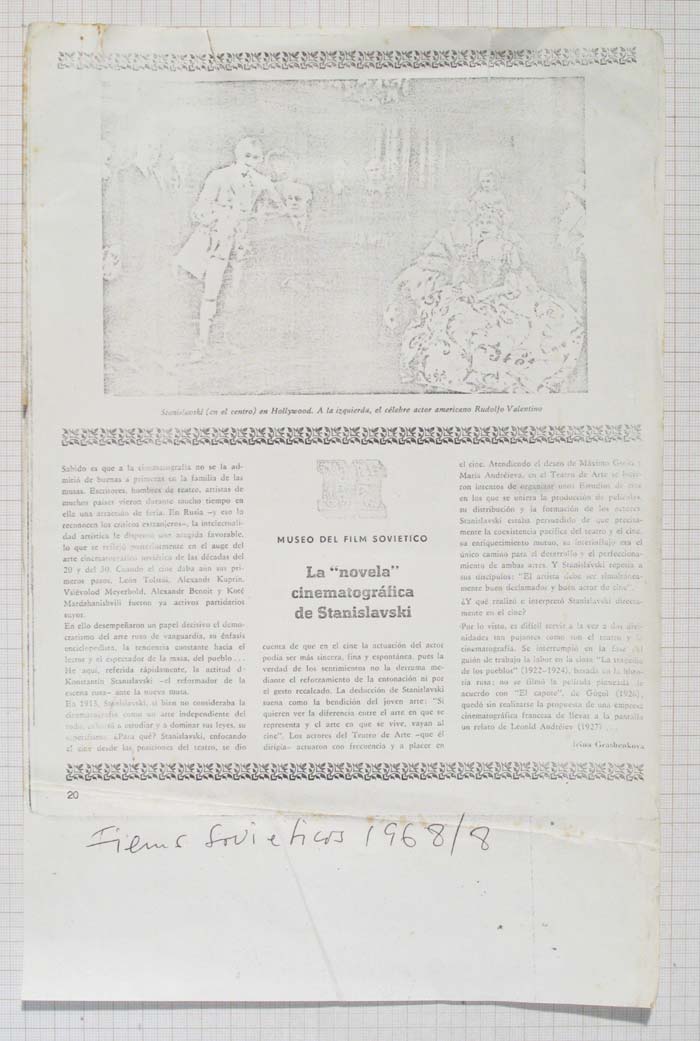 Stanislavski (en el centro) en Hollywood. A la izquierda, el célebre actor americano Rudolfo Valentino
Sabido es que a la cinematografía no se la ad-
mitió de buenas a primeras en la familia de las
musas. Escritores, hombres de teatro, artistas de
muchos países vieron durante mucho tiempo en
ella una atracción de feria. En Rusia —y eso lo
reconocen los críticos extranjeros—, la intelectuali-
dad artística le dispensó una acogida favorable,
lo que se reflejó posteriormente en el auge del
arte cinematográfico soviético de las décadas del
20 y del 30. Cuando el cine daba aún sus pri-
meros pasos, León Tolstói, Alexandr Kuprin,
Vsiévolod Meyerhold, Alexandr Benoit y Koté
Mardzhanishvili fueron ya activos partidarios
suyos.
En ello desempeñaron un papel decisivo el demo-
cratismo del arte ruso de vanguardia, su énfasis
enciclopedista, la tendencia constante hacia el
lector y el espectador de la masa, del pueblo...
He aquí, referida rápidamente, la actitud d-
Konstantín Stanislavski —el reformador de la
escena rusa— ante la nueva musa.
En 1913, Stanislavski, si bien no consideraba la
cinematografía como un arte independiente del
todo, exhortó a estudiar y a dominar sus leyes, su
específismo. ¿Para qué? Stanislavski, enfocando
el cine desde las posiciones del teatro, se dio
MUSEO DEL FILM SOVIETICO
La "novela"
cinematográfica
de Stanislavski
cuenta de que en el cine la actuación del actor
podía ser más sincera, fina y espontánea, pues la
verdad de los sentimientos no la derrama me-
diante el reforzamiento de la entonación ni por
el gesto recalcado. La deducción de Stanislavski
suena como la bendición del joven arte: "Si
quieren ver la diferencia entre el arte en que se
representa y el arte en que se vive, vayan al
cine". Los actores del Teatro de Arte —que él
dirigía— actuaron con frecuencia y a placer en
el cine. Atendiendo el deseo de Máximo Gorki y
María Andréieva, en el Teatro de Arte se hicie-
ron intentos de organizar unos Estudios de cine
en los que se uniera la producción de películas,
su distribución y la formación de los actores.
Stanislavski estaba persuadido de que precisa-
mente la coexistencia pacífica del teatro y el cine,
su enriquecimiento mutuo, su interinflujo era el
único camino para el desarrollo y el perfecciona-
miento de ambas artes. Y Stanislavski repetía a
sus discípulos: "El artista debe ser simultánea-
mente buen declamador y buen actor de cine".
¿Y qué realizó e interpretó Stanislavski directa-
mente en el cine?
Por lo visto, es difícil servir a la vez a dos divi-
nidades tan pujantes como son el teatro y la
cinematografía. Se interrumpió en la fase del
guión de trabajo la labor en la cinta "La tragedia
de los pueblos" (1922–1924), basada en la histo-
ria rusa; no se filmó la película pensada de
acuerdo con "El capote", de Gógol (1926);
quedó sin realizarse la propuesta de una empresa
cinematográfica francesa de llevar a la pantalla
un relato de Leonid Andréiev (1927)...
Irina Grashenkova
20
Films Sovieticos 1968/8